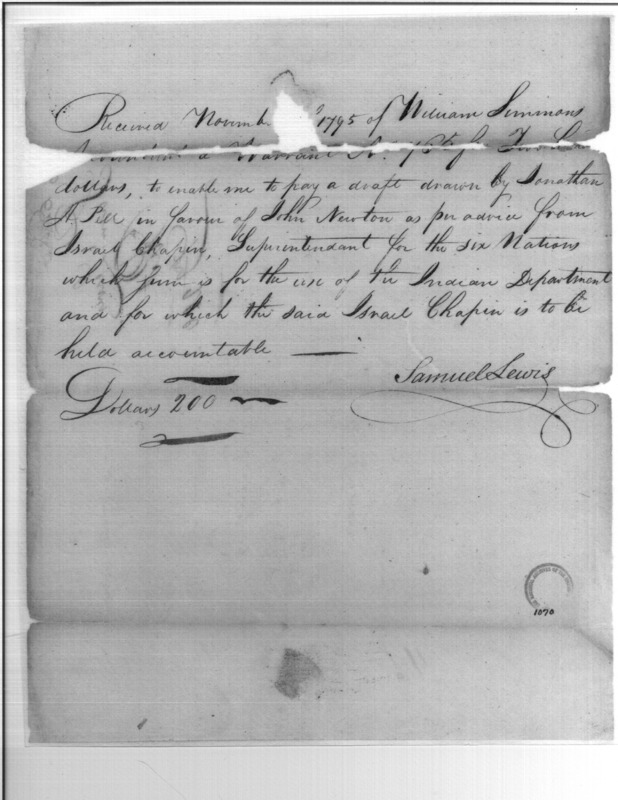 Received Novemb 1795 of William Simmons
a Warrant No. for Two
dollars, to enable me to pay a draft drawn by Jonathan
A Pell in favour of John Newton as per advice from
Israel Chapin, Superintendant for the six Nations
which sum is for the use of the Indian Department
and for which the said Israel Chapin is to be
held accountable
Samuel Lewis
Dollars 200
1070